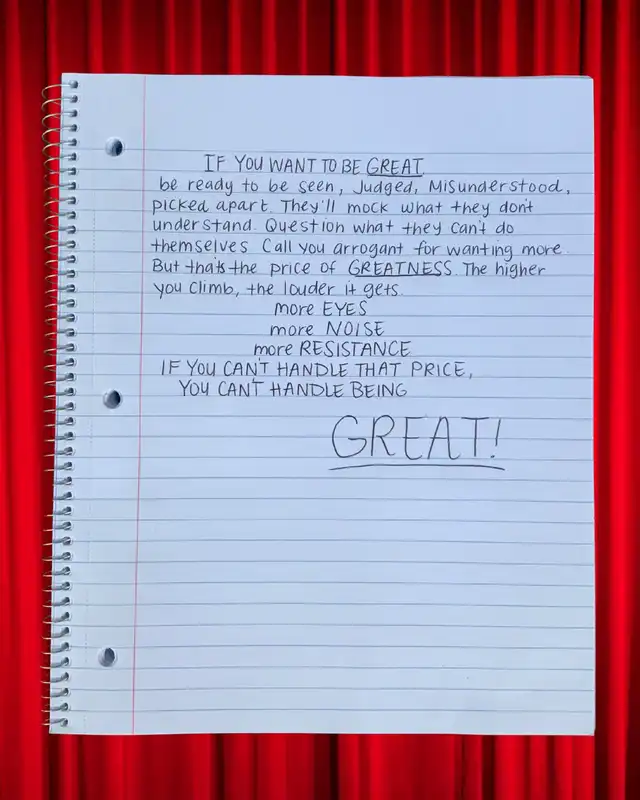 IF YOU WANT TO BE GREAT
be ready to be seen, Judged, Misunderstood,
picked apart. They'll mock what they don't
understand. Question what they can't do
themselves. Call you arrogant for wanting more.
But that's the price of GREATNESS. The higher
you climb, the louder it gets.
more EYES
more NOISE
more RESISTANCE
IF YOU CAN'T HANDLE THAT PRICE,
YOU CAN'T HANDLE BEING
GREAT!